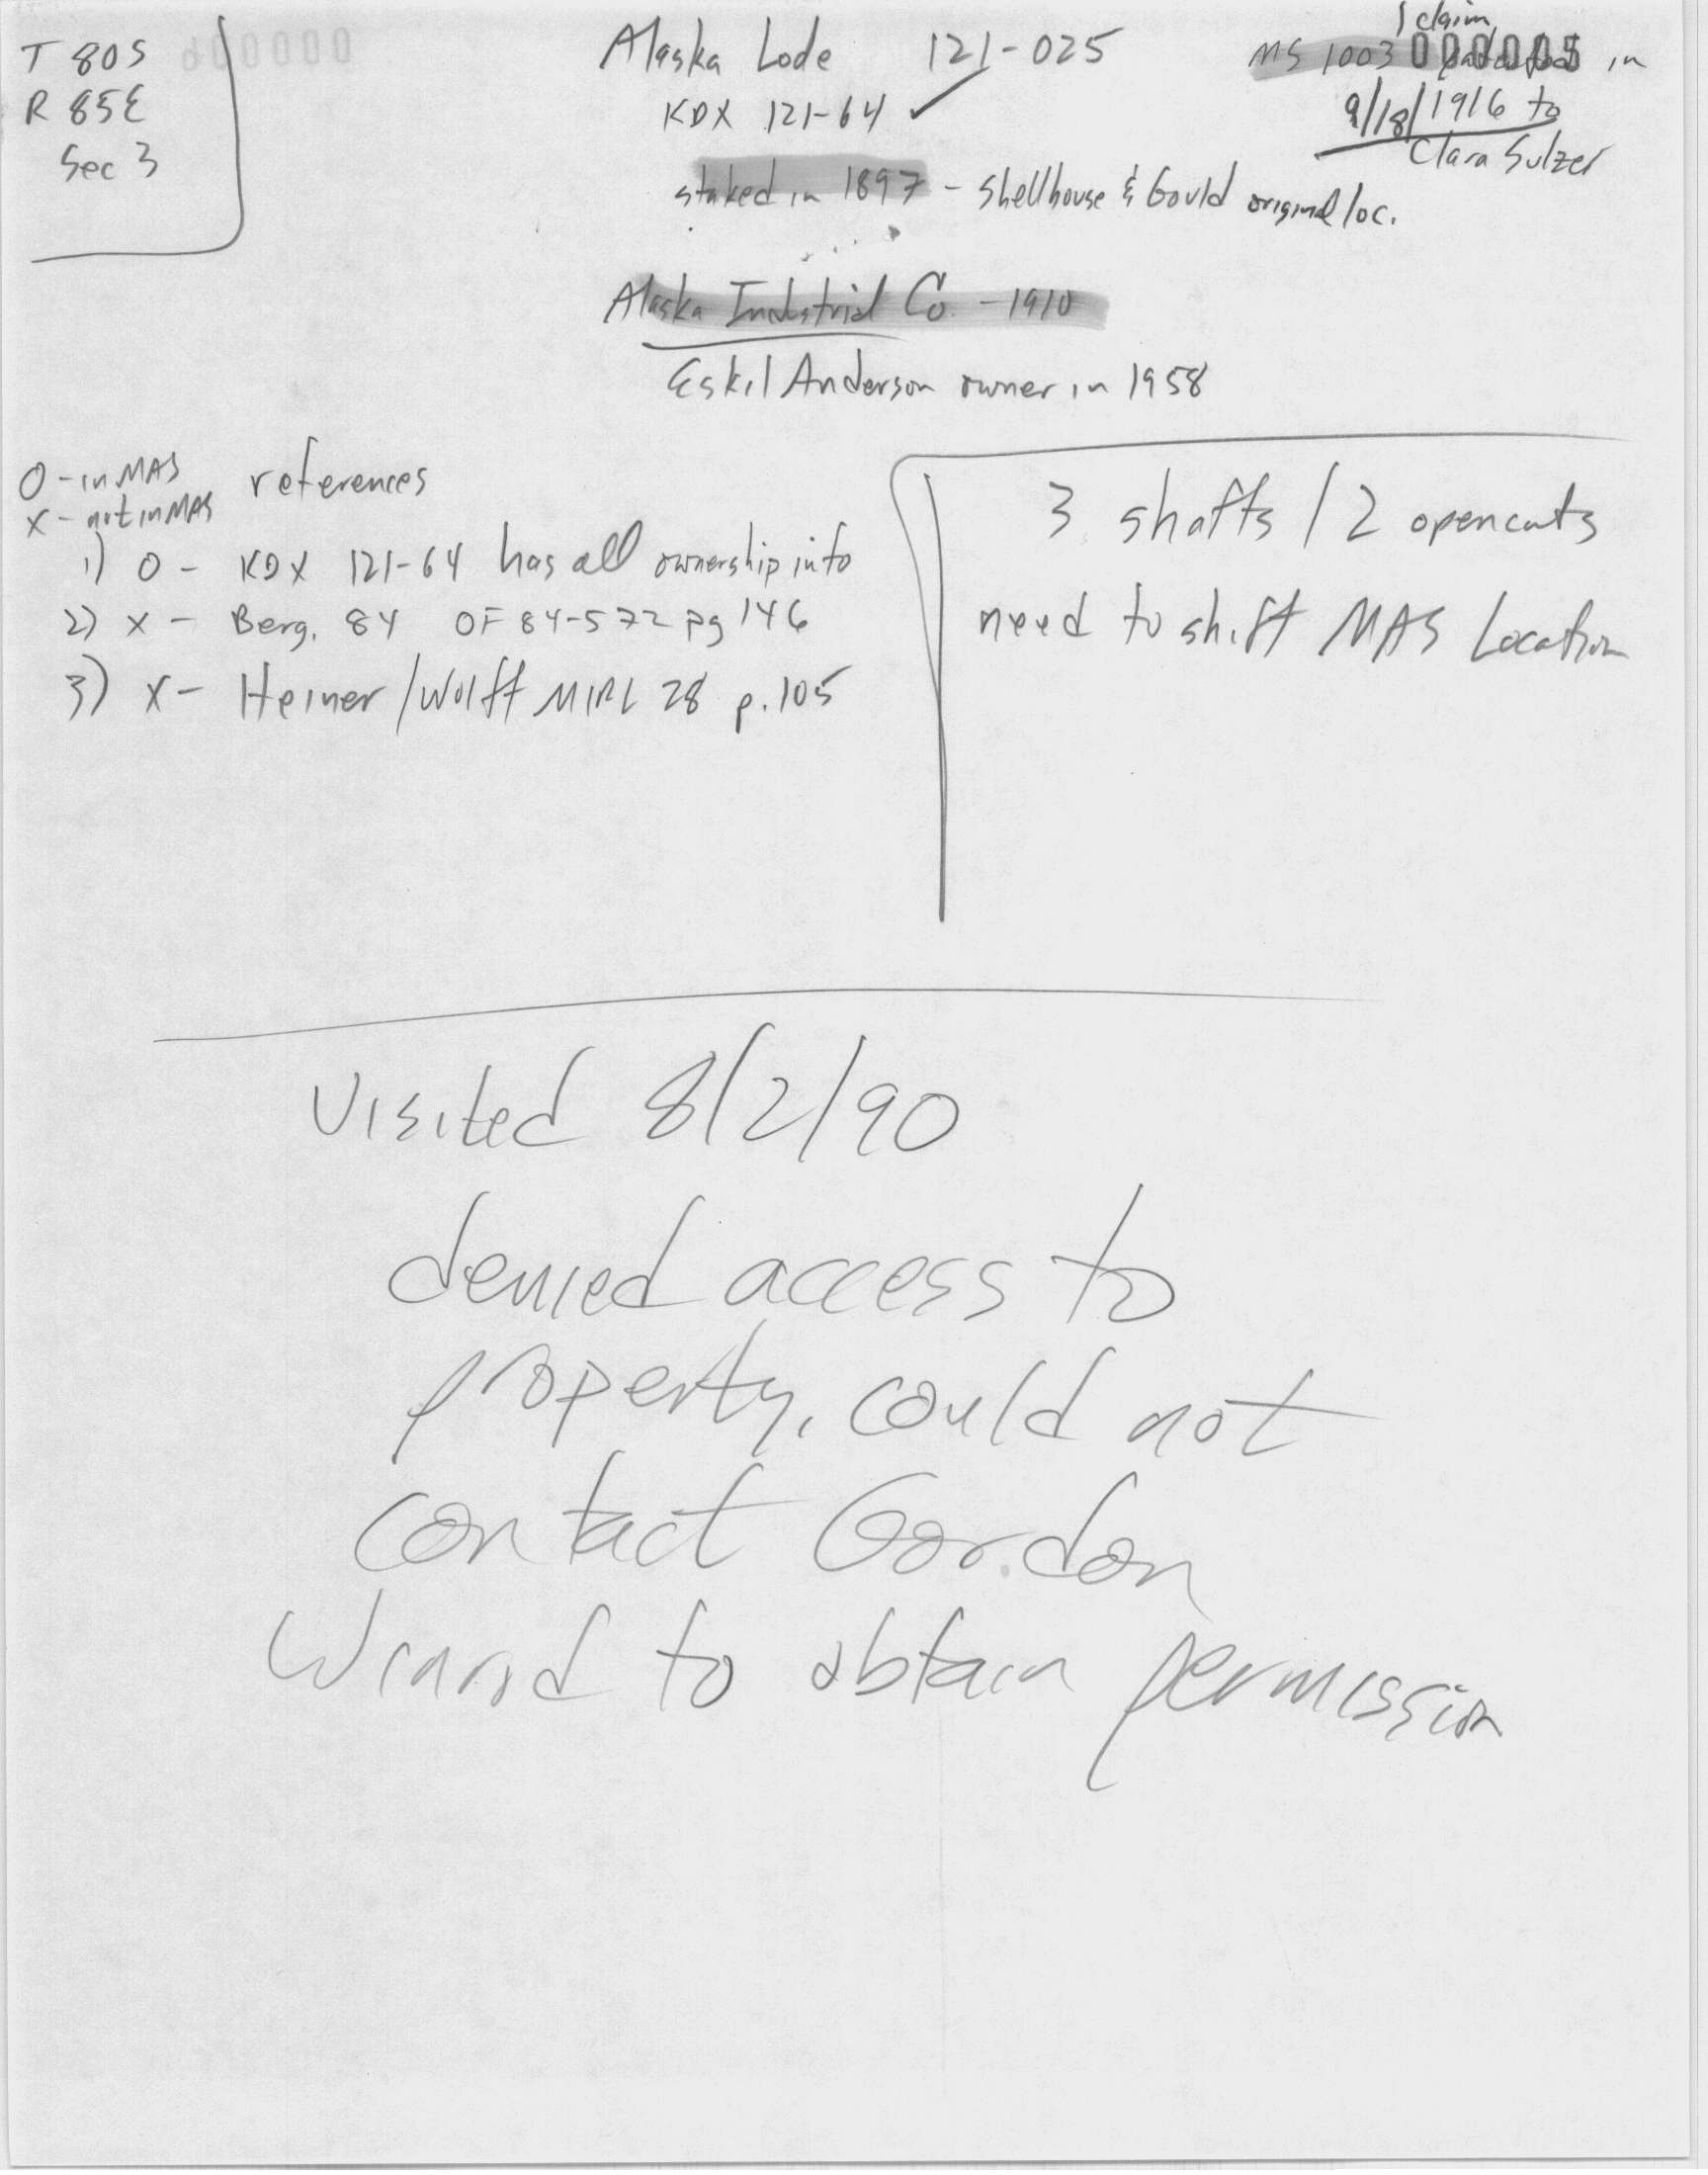 T 80S
R 85E
Sec 3
Alaska Lode 121-025
KDX 121-64 ✓
staked in 1897 - Shellhouse & Gould original loc.
1 claim
MS 1003 000005 in
9/18/1916 to
Clara Sulzer
Alaska Industrial Co. - 1910
Eskil Anderson owner in 1958
O - in MAS
X - not in MAS
references
1) O - KDX 121-64 has all ownership info
2) X - Berg. 84 OF 84-572 pg 146
3) X - Heiner/Wolff MIRL 28 p. 105
3 shafts / 2 opencuts
need to shift MAS Location
Visited 8/2/90
denied access to
property, could not
contact Gordon
to obtain permission